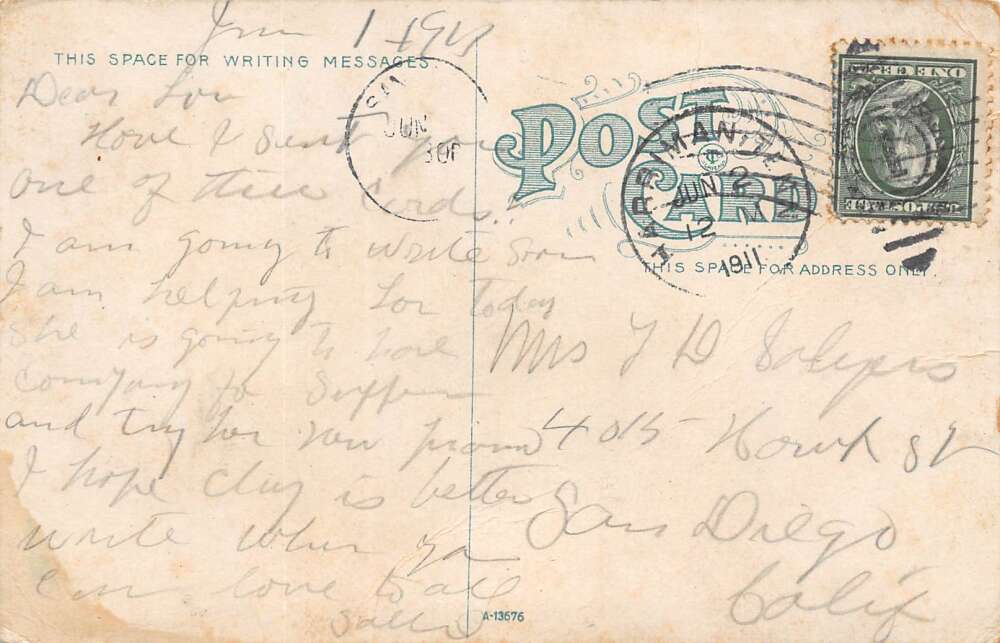 Jun 1 1911
THIS SPACE FOR WRITING MESSAGES
Dear Lou
Have I sent you
one of these Cards?
I am going to write soon
I am helping Lor today
she is going to have
company to supper
and try her new piano
I hope Clay is better
write when ya
can love to all
Sallie
SAN
JUN
30P
POST CARD
HARRIMAN, TENN.
JUN 2
12 M
1911
ONE CENT
U.S. POSTAGE
THIS SPACE FOR ADDRESS ONLY.
Mrs T D
St
San Diego
Calif
A-13676